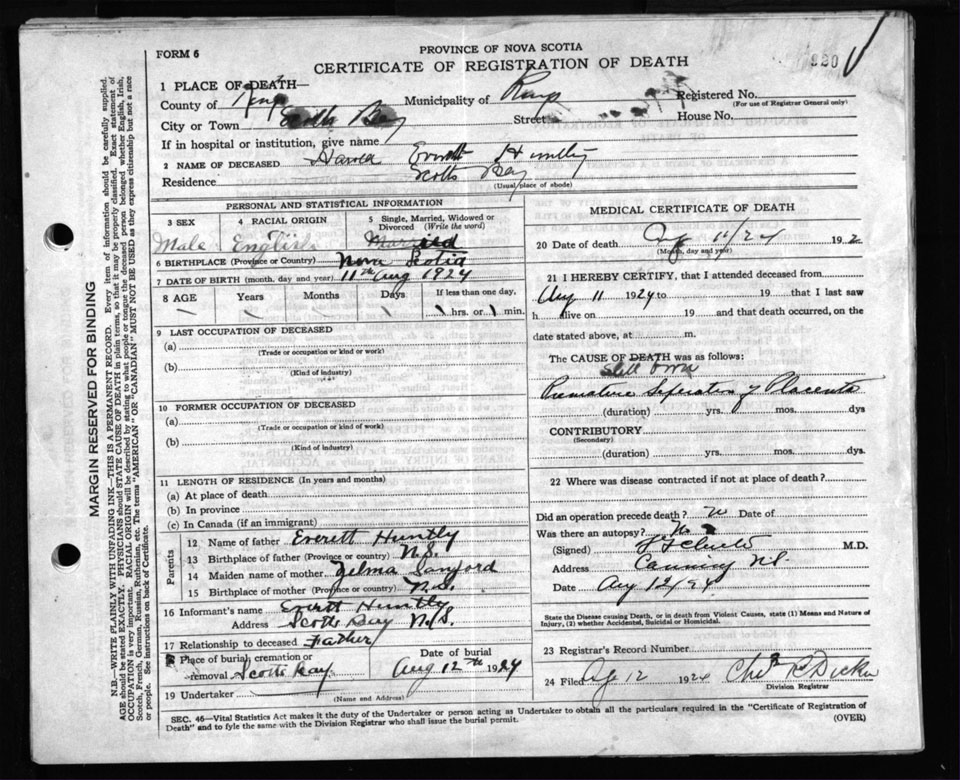 FORM 6
PROVINCE OF NOVA SCOTIA
CERTIFICATE OF REGISTRATION OF DEATH
930
1 PLACE OF DEATH—
County of Kings Municipality of Kings Registered No.
(For use of Registrar General only)
City or Town Scotts Bay Street House No.
If in hospital or institution, give name
2 NAME OF DECEASED Everett Huntley
Residence Scotts Bay
(Usual place of abode)
PERSONAL AND STATISTICAL INFORMATION
3 SEX 4 RACIAL ORIGIN 5 Single, Married, Widowed or
Divorced (Write the word)
Male English
6 BIRTHPLACE (Province or Country) Nova Scotia
7 DATE OF BIRTH (month, day and year) 11th Aug 1924
8 AGE Years Months Days If less than one day,
hrs. or min.
9 LAST OCCUPATION OF DECEASED
(a)
(Trade or occupation or kind or work)
(b)
(Kind of industry)
10 FORMER OCCUPATION OF DECEASED
(a)
(Trade or occupation or kind or work)
(b)
(Kind of industry)
11 LENGTH OF RESIDENCE (In years and months)
(a) At place of death
(b) In province
(c) In Canada (if an immigrant)
Parents
12 Name of father Everett Huntly
13 Birthplace of father (Province or country) N.S.
14 Maiden name of mother Zelma Sanford
15 Birthplace of mother (Province or country) N.S.
16 Informant's name Everett Huntly
Address Scotts Bay N.S.
17 Relationship to deceased Father
Place of burial, cremation or Date of burial
removal Scotts Bay Aug 12th 1924
19 Undertaker
(Name and Address)
MEDICAL CERTIFICATE OF DEATH
20 Date of death Aug 11/24 192
(Month, day and year)
21 I HEREBY CERTIFY, that I attended deceased from
Aug 11 1924 to 19 that I last saw
h alive on 19 and that death occurred, on the
date stated above, at m.
The CAUSE OF DEATH was as follows:
Still born
Premature Seperation of Placenta
(duration) yrs. mos. dys
CONTRIBUTORY
(Secondary)
(duration) yrs. mos. dys.
22 Where was disease contracted if not at place of death?
Did an operation precede death? Date of
Was there an autopsy? No
(Signed) M.D.
Address Canning N.S.
Date Aug 12/24
State the Disease causing Death, or in death from Violent Causes, state (1) Means and Nature of
Injury, (2) whether Accidental, Suicidal or Homicidal.
23 Registrar's Record Number
24 Filed 12 1924
Division Registrar
SEC. 46—Vital Statistics Act makes it the duty of the Undertaker or person acting as Undertaker to obtain all the particulars required in the "Certificate of Registration of
Death" and to fyle the same with the Division Registrar who shall issue the burial permit.
(OVER)
MARGIN RESERVED FOR BINDING
N.B.—WRITE PLAINLY WITH UNFADING INK—THIS IS A PERMANENT RECORD. Every item of information should be carefully supplied.
AGE should be stated EXACTLY. PHYSICIANS should STATE CAUSE OF DEATH in plain terms, so that it may be properly classified. Exact statement of
OCCUPATION is very important. RACIAL ORIGIN will be described by stating to what people or tongue the deceased person belonged whether English, Irish,
Scotch, French, German, Russian, Ruthenian, etc. The terms "AMERICAN" OR "CANADIAN" MUST NOT BE USED as they express citizenship but not a race
or people. See instructions on back of Certificate.